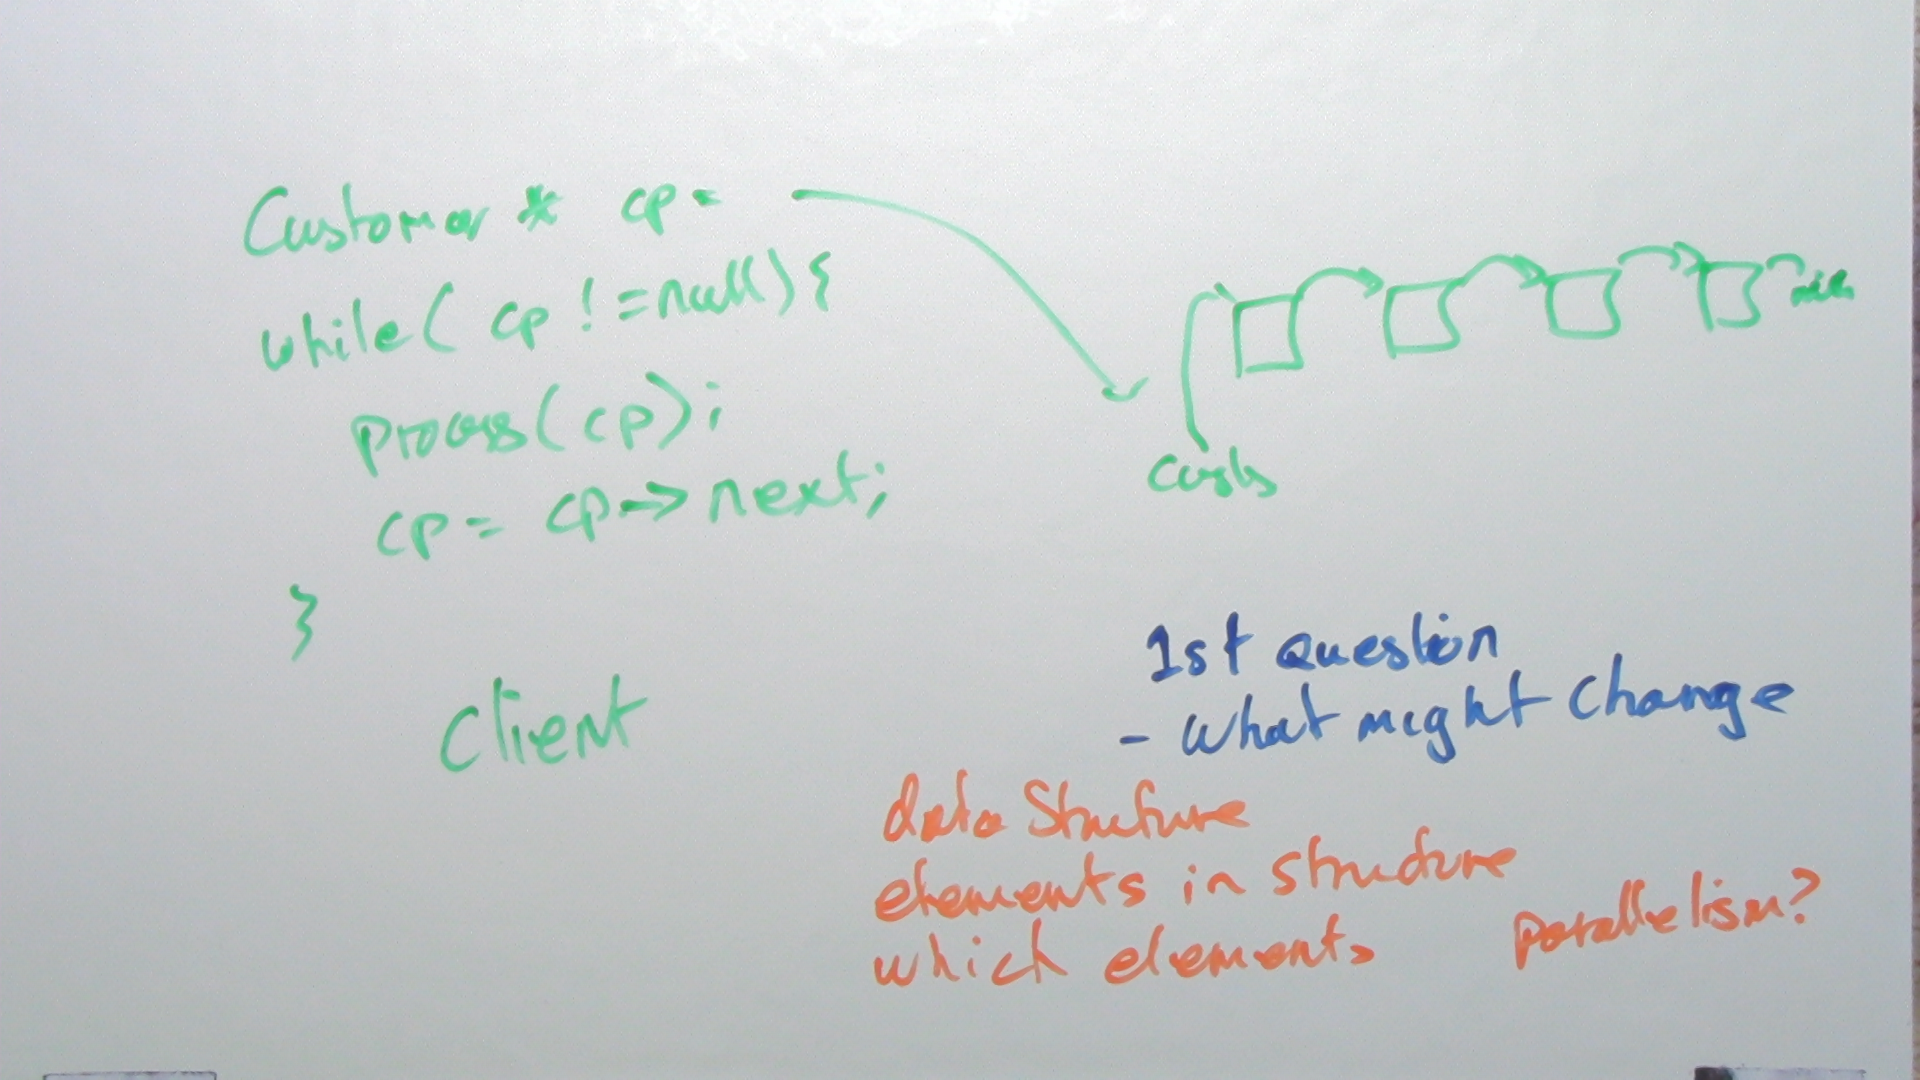 Customer * cp =
while ( cp != null) {
process (cp);
cp = cp -> next;
}
Client
custs
1st question
- what might change
data structure
elements in structure
which elements
parallelism?